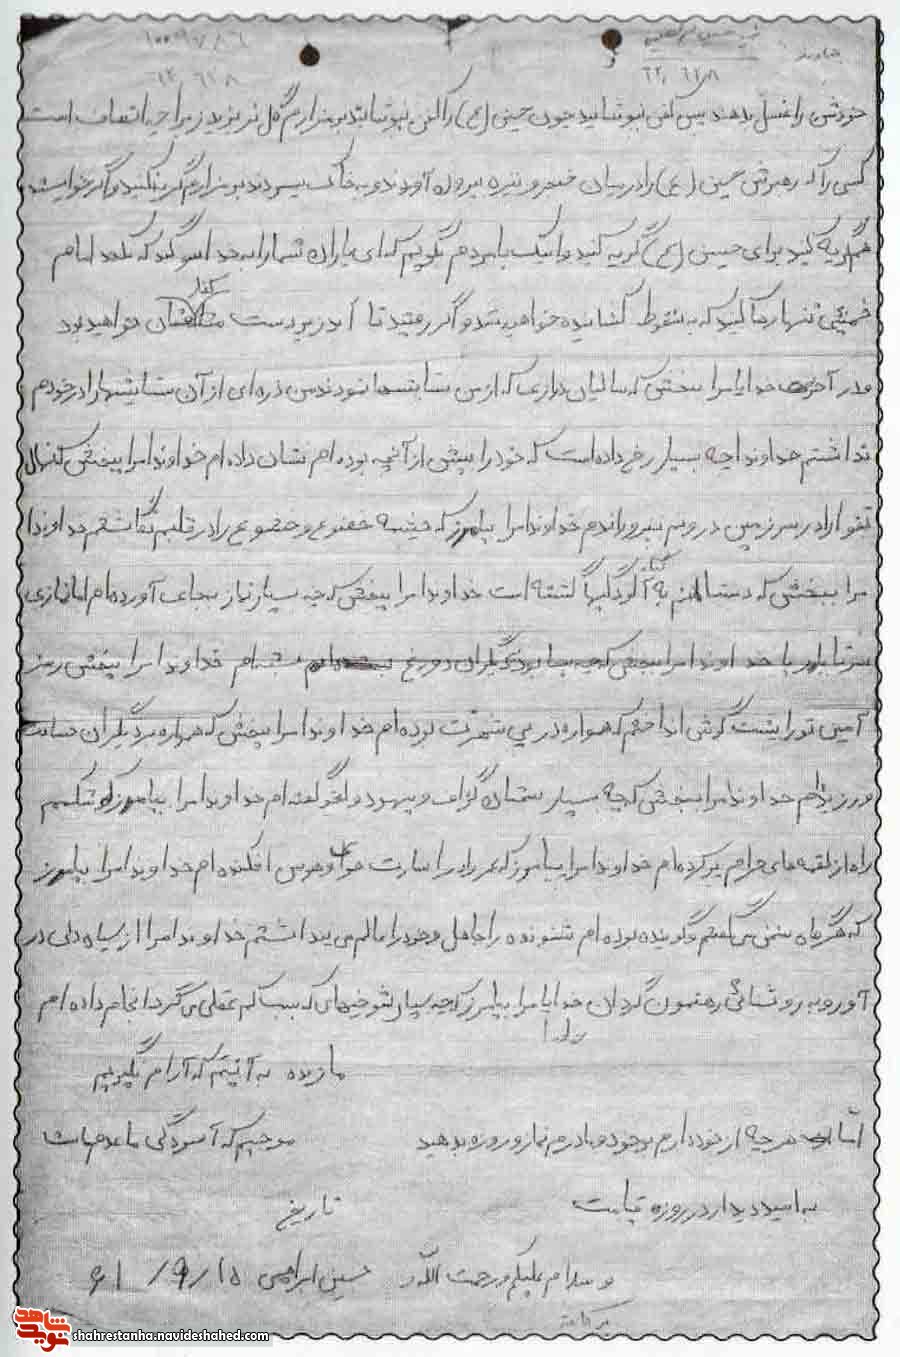 شهید حسین ابراهیمی
خودش را غسل بدهند پس کفن نپوشانید چون حسین (ع) را کفن نپوشانید بر مزارم گل نریزید زیرا چه انصاف است
کسی را که رهبرش حسین (ع) را در میان خنجر و نیزه بیرون آوردند و به خاک سپردند بر مزارم گریه نکنید و اگر خواستید
هم گریه کنید برای حسین (ع) گریه کنید و اینک با مردم بگویم که ای یاران شما را به خدا سوگند که نکند امام
خمینی تنها رها کنید که به سقوط کشانیده خواهید شد و اگر رفتید تا ابد زیر دست کفار خواهید بود
و در آخر خدایا مرا ببخش که سالیان درازی که از من ستایشها نمودند من ذره ای از آن ستایشها را در خودم
نداشتم خداوندا چه بسیار رخ داده است که خود را بیش از آنچه بوده ام نشان داده ام خداوندا مرا ببخش که نهال
تقوا را در سرزمین دروسم نپروراندم خداوندا مرا بیامرز که چشمه خضوع و خشوع را در قلبم نگاشتم خداوندا
مرا ببخش که دستانم به گناه آلوده گشته است خداوندا مرا ببخش که چه بسیار نماز بجای آورده ام اما نمازی
خداوندا مرا ببخش که چه بسا بدیگران دروغ ام خداوندا مرا ببخش رمز
آمین تو را پشت گوش انداختم که همواره در پی شهرت بوده ام خداوندا مرا ببخش که همواره بر دیگران حسادت
ورزیده ام خداوندا مرا ببخش که چه بسیار سخنان گزاف و بیهوده و لغو گفته ام خداوندا مرا بیامرز که شکمم
را از لقمه های حرام پر کرده ام خداوندا مرا بیامرز که خود را در اسارت هوای و هوس افکنده ام خداوندا مرا بیامرز
که هر گاه سخن می گفتم و گوینده بوده ام شنونده را جاهل و خود را عالم می پنداشتم خداوندا مرا از سیاه دلی در
آور و به روشنائی رهنمون گردان خدایا مرا بیامرز که چه بسیار شوخیهای که سبب کم عقلی می گردد انجام داده ام
ما زنده به آنیم که آرام نگیریم
اما هر چه از خود دارم بوجود و مادرم نماز و روزه بدهید
موجیم که آسودگی ما عدم ماست
به امید دیدار در روزه قیامت
تاریخ
و سلام علیکم و رحمت الله و
حسین ابراهیمی ۶۱/۹/۱۵
برکاته
shahrestanha.navideshahed.com